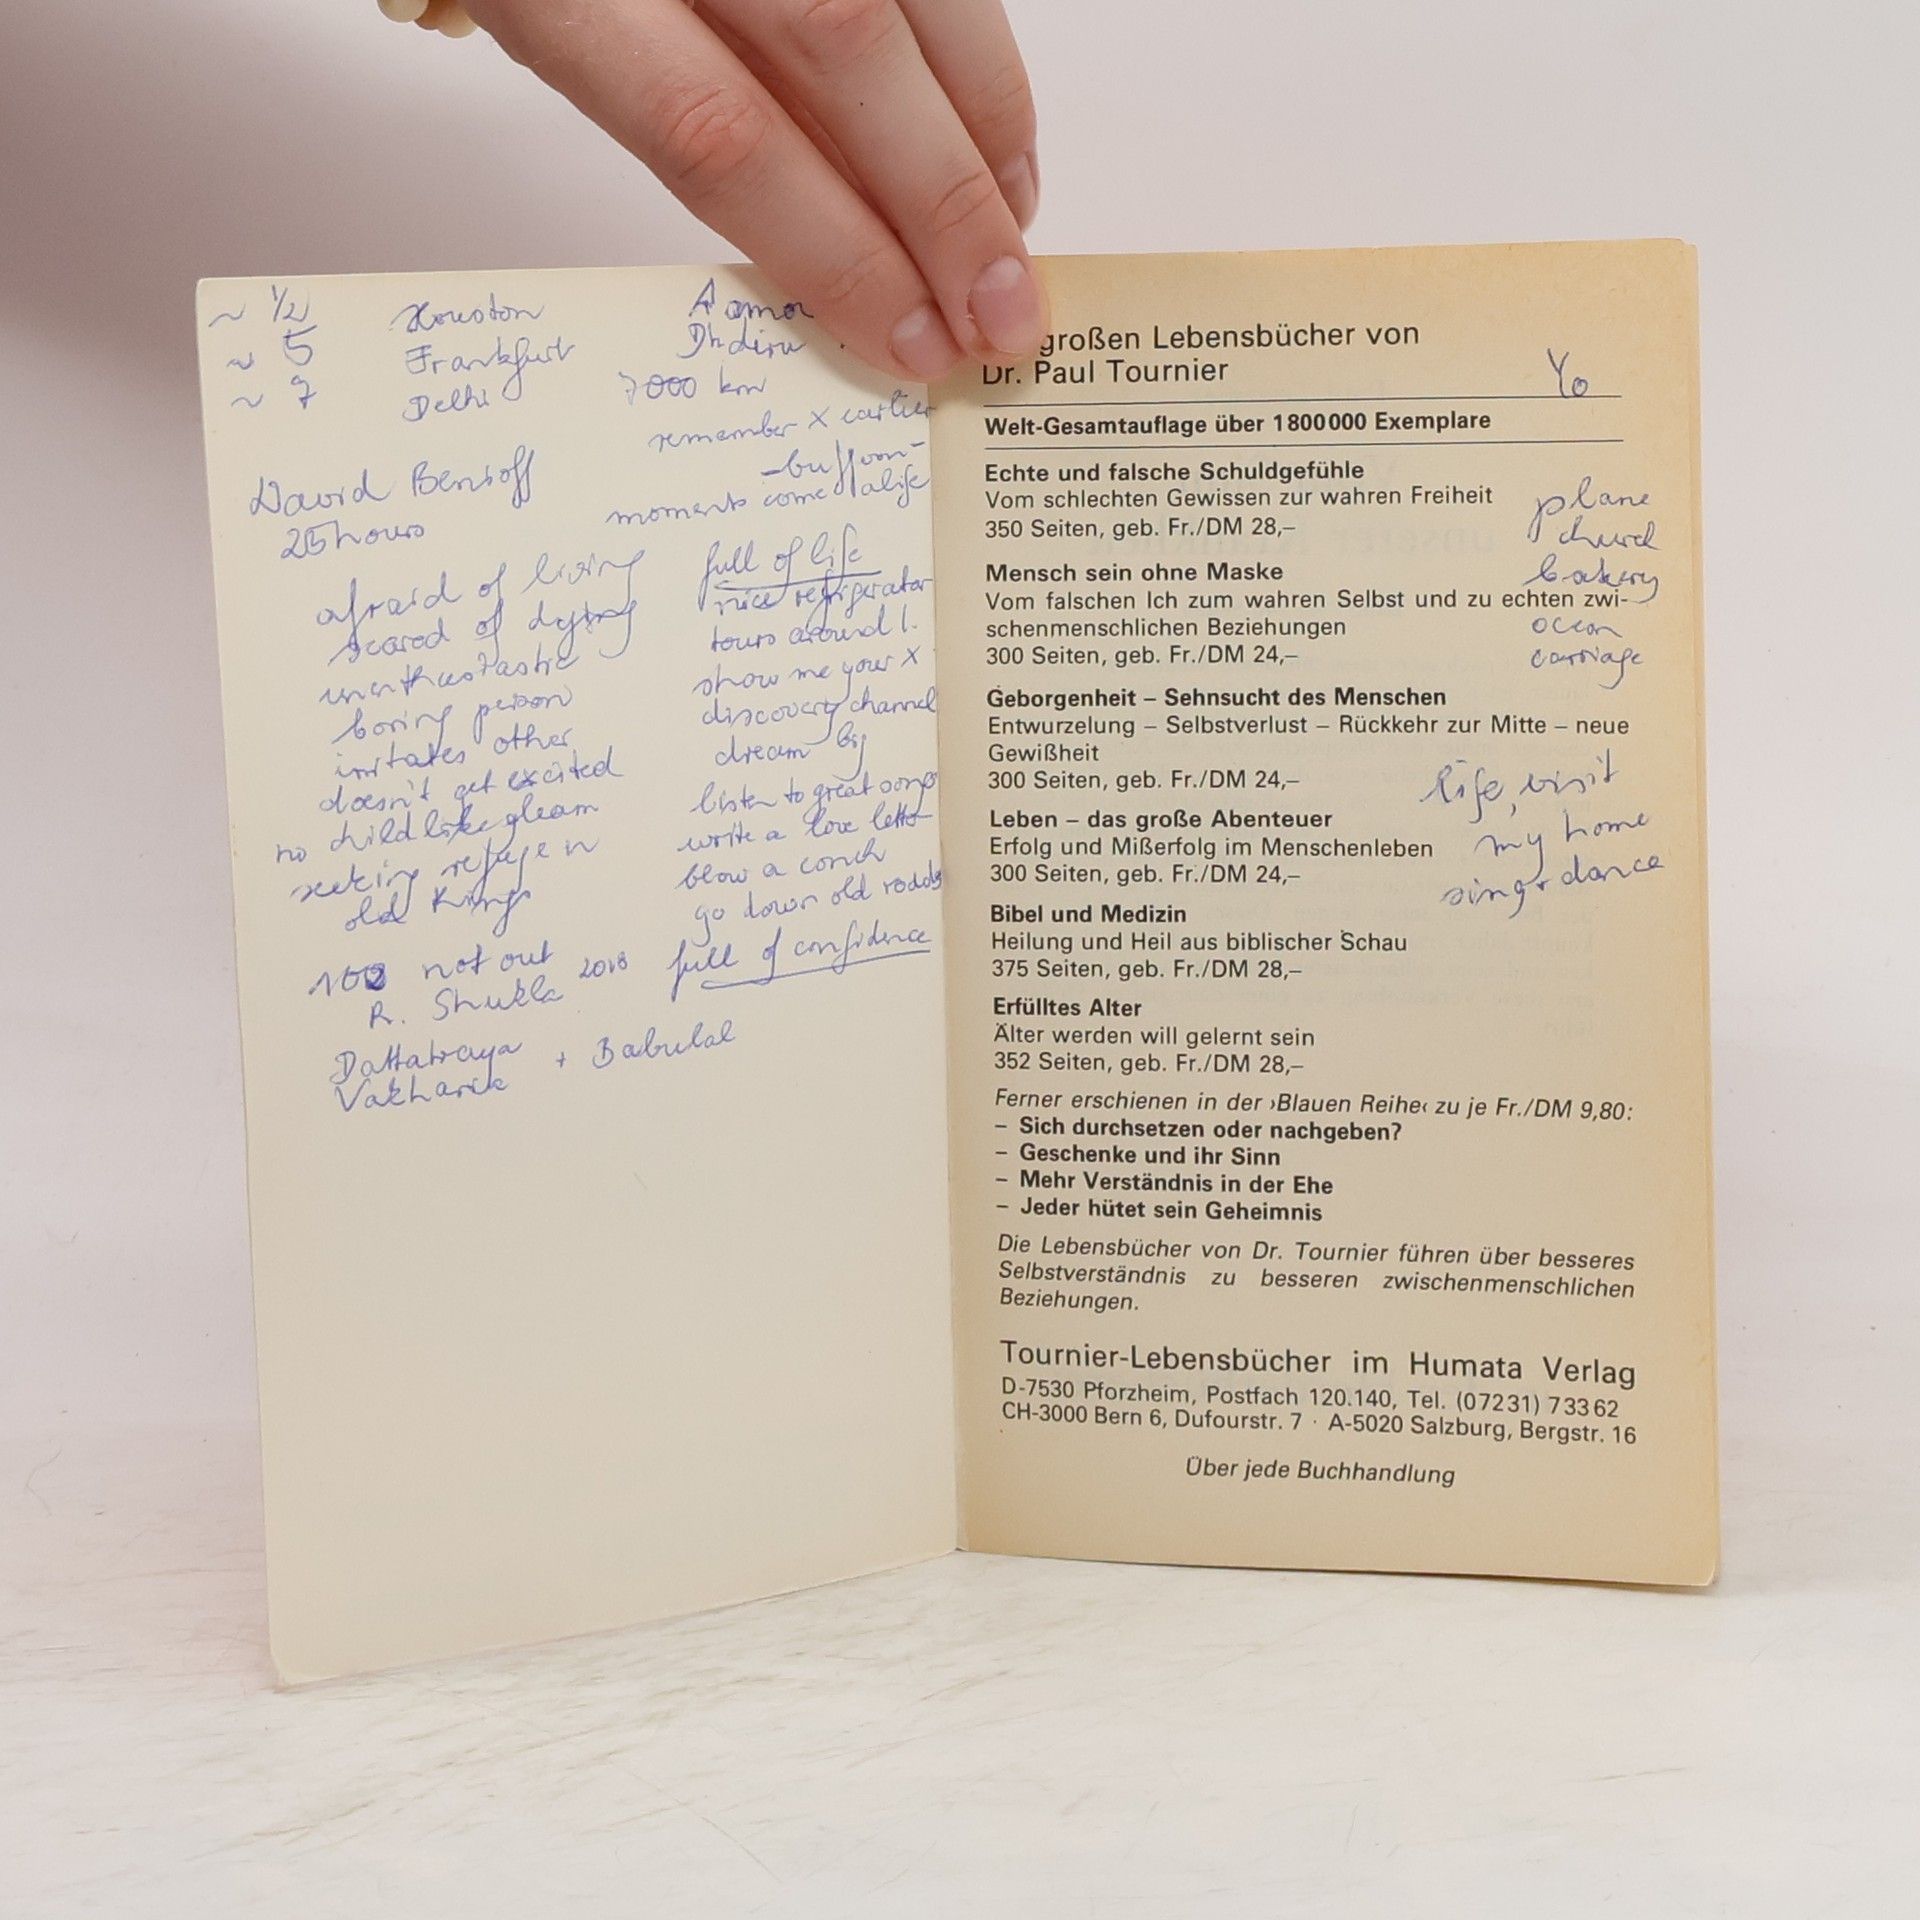 ~ 1/2 Houston Aamor
~ 5 Frankfurt Dhdiru
~ 7 Delhi 7000 km
remember x earlier
David Benioff -buffoon-
25 hours moments come alife
afraid of living full of life
scared of dying nice refrigerator
unenthusiastic tours around l.
boring person show me your x
irritates other discovery channel
doesn't get excited dream big
no childlike gleam listen to great songs
seeking refuge in write a love letter
old things blow a conch
go down old roads
102 not out 2018 full of confidence
R. Shukla
Dattatraya + Babulal
Vakharia
großen Lebensbücher von
Dr. Paul Tournier Yo
Welt-Gesamtauflage über 1800000 Exemplare
Echte und falsche Schuldgefühle
Vom schlechten Gewissen zur wahren Freiheit plane
350 Seiten, geb. Fr./DM 28,– church
Mensch sein ohne Maske bakery
Vom falschen Ich zum wahren Selbst und zu echten zwi-
schenmenschlichen Beziehungen ocean
300 Seiten, geb. Fr./DM 24,– carriage
Geborgenheit – Sehnsucht des Menschen
Entwurzelung – Selbstverlust – Rückkehr zur Mitte – neue
Gewißheit
300 Seiten, geb. Fr./DM 24,– life, visit
Leben – das große Abenteuer
Erfolg und Mißerfolg im Menschenleben my home
300 Seiten, geb. Fr./DM 24,– sing + dance
Bibel und Medizin
Heilung und Heil aus biblischer Schau
375 Seiten, geb. Fr./DM 28,–
Erfülltes Alter
Älter werden will gelernt sein
352 Seiten, geb. Fr./DM 28,–
Ferner erschienen in der ›Blauen Reihe‹ zu je Fr./DM 9,80:
– Sich durchsetzen oder nachgeben?
– Geschenke und ihr Sinn
– Mehr Verständnis in der Ehe
– Jeder hütet sein Geheimnis
Die Lebensbücher von Dr. Tournier führen über besseres
Selbstverständnis zu besseren zwischenmenschlichen
Beziehungen.
Tournier-Lebensbücher im Humata Verlag
D-7530 Pforzheim, Postfach 120.140, Tel. (07231) 73362
CH-3000 Bern 6, Dufourstr. 7 · A-5020 Salzburg, Bergstr. 16
Über jede Buchhandlung